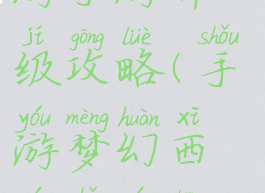 jí gōng lüè shǒu
级攻略(手
yóu mèng huàn xī
游梦幻西